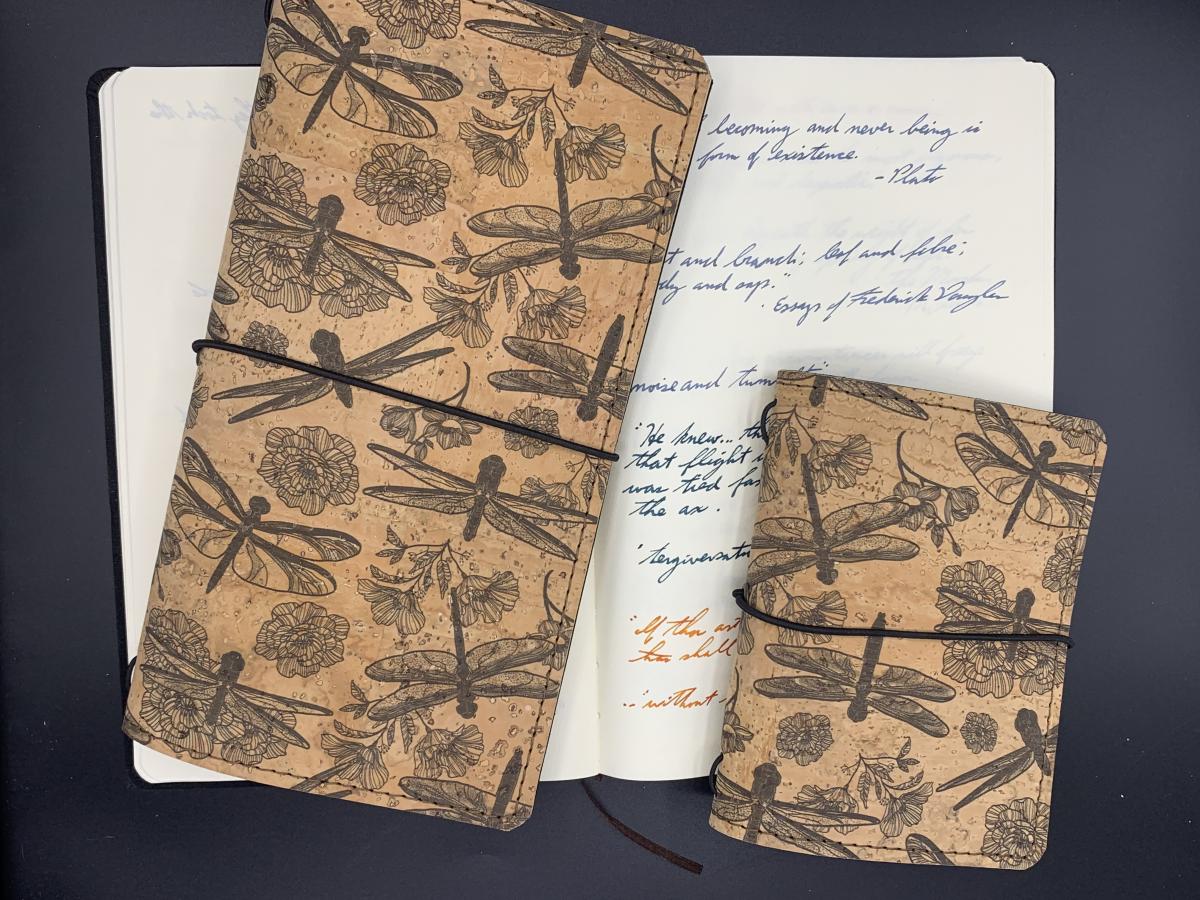 becoming and never being is
form of existence.
- Plato
and branch; leaf and fibre;
and sap."
- Essays of Frederick Douglas
noise and tumult"
"He knew... the
that flight
was tied fas
the ax.
"tergiversatu
"If thou art
has shall
"without -